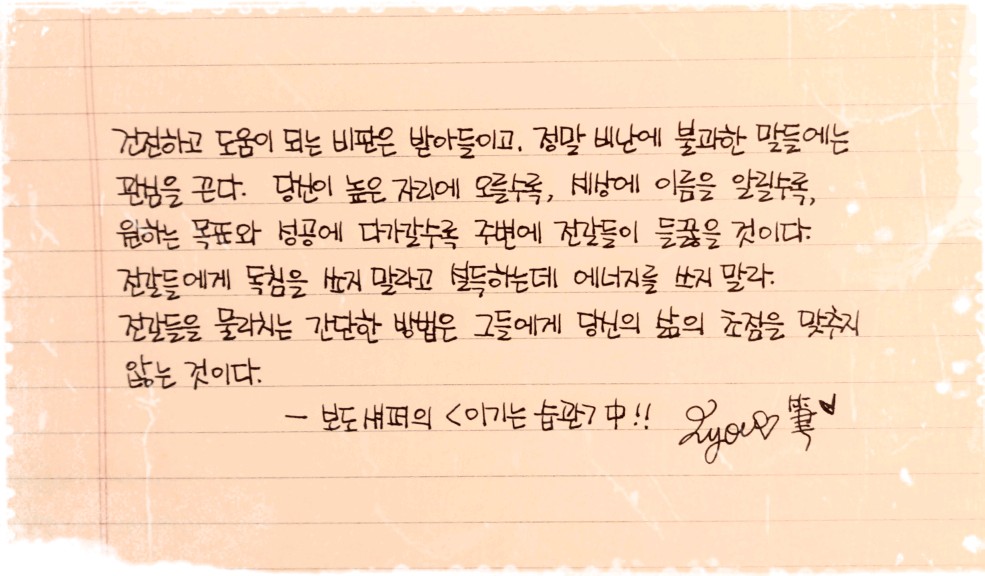 건전하고 도움이 되는 비판은 받아들이고, 정말 비난에 불과한 말들에는
관심을 끈다. 당신이 높은 자리에 오를수록, 세상에 이름을 알릴수록,
원하는 목표와 성공에 다가갈수록 주변에 전갈들이 들끓을 것이다.
전갈들에게 독침을 쏘지 말라고 설득하는데 에너지를 쓰지 말라.
전갈들을 물리치는 간단한 방법은 그들에게 당신의 삶의 초점을 맞추지
않는 것이다.
- 보도섀퍼의 <이기는 습관> 中!! 筆